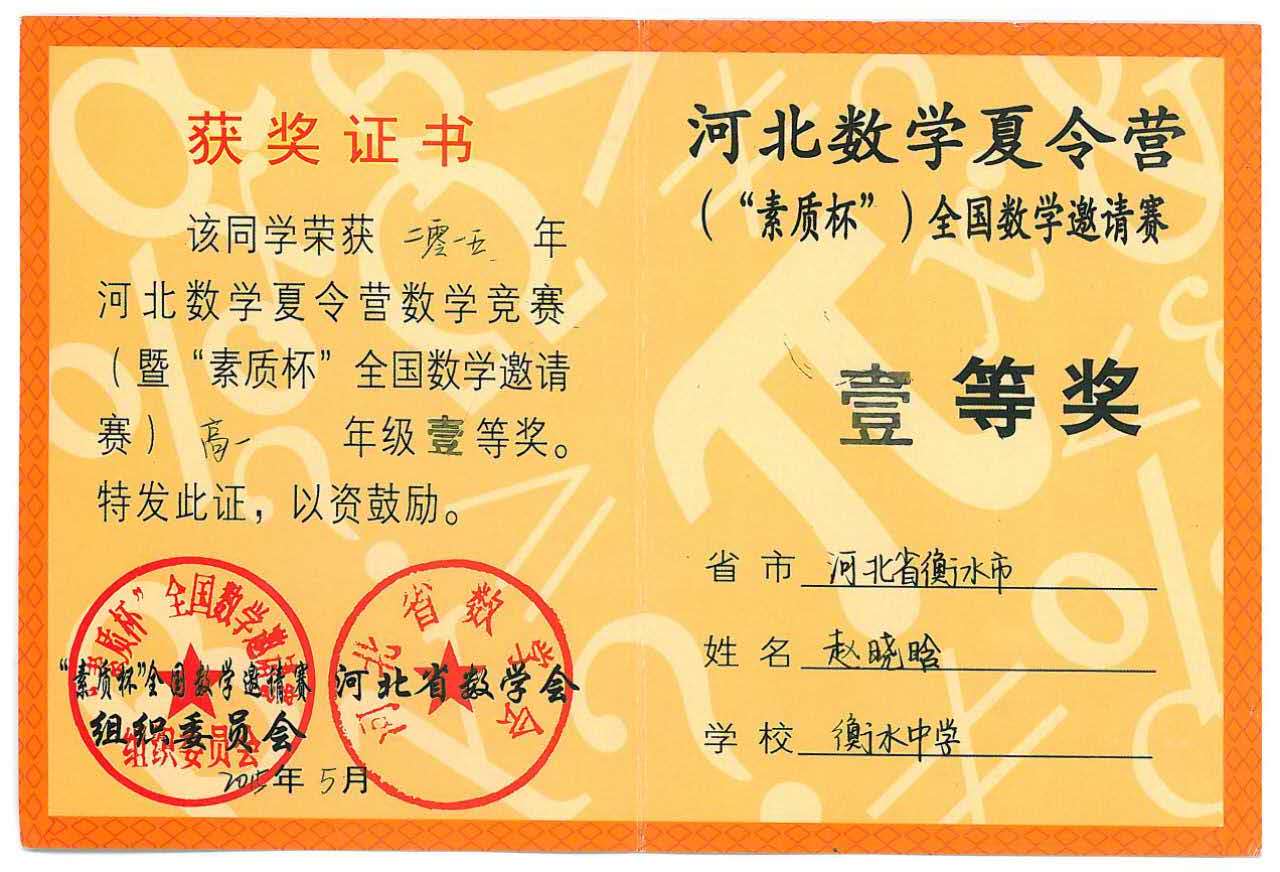 获奖证书
该同学荣获 二零一五 年
河北数学夏令营数学竞赛
（暨“素质杯”全国数学邀请
赛） 高一 年级壹等奖。
特发此证，以资鼓励。
“素质杯”全国数学邀请赛
组织委员会
“素质杯”全国数学邀请赛
组织委员会
河北省数学会
河北省数学会
2015年5月
河北数学夏令营
（“素质杯”）全国数学邀请赛
壹等奖
省市 河北省衡水市
姓名 赵晓晗
学校 衡水中学